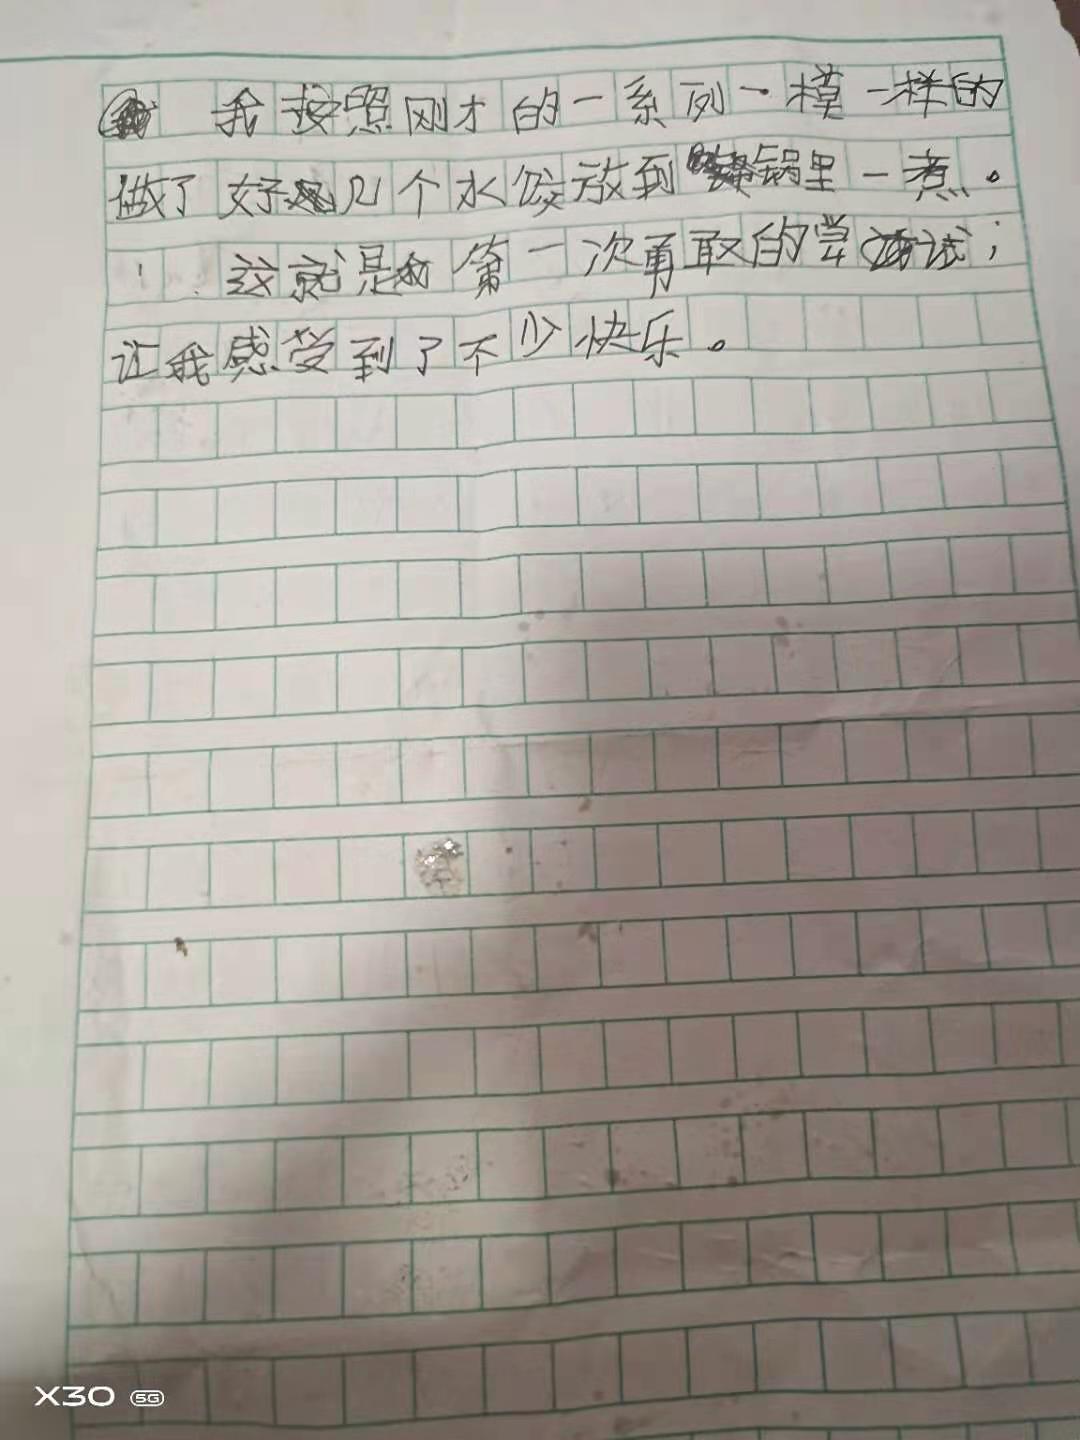 我按照刚才的一系列一模一样的
做了好几个水饺放到锅里一煮。
这就是我第一次勇敢的尝试；
让我感受到了不少快乐。
X30 5G